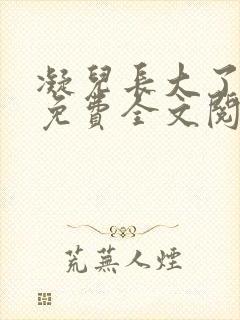 凝兒長大了
免費全文閱
荒蕪人煙